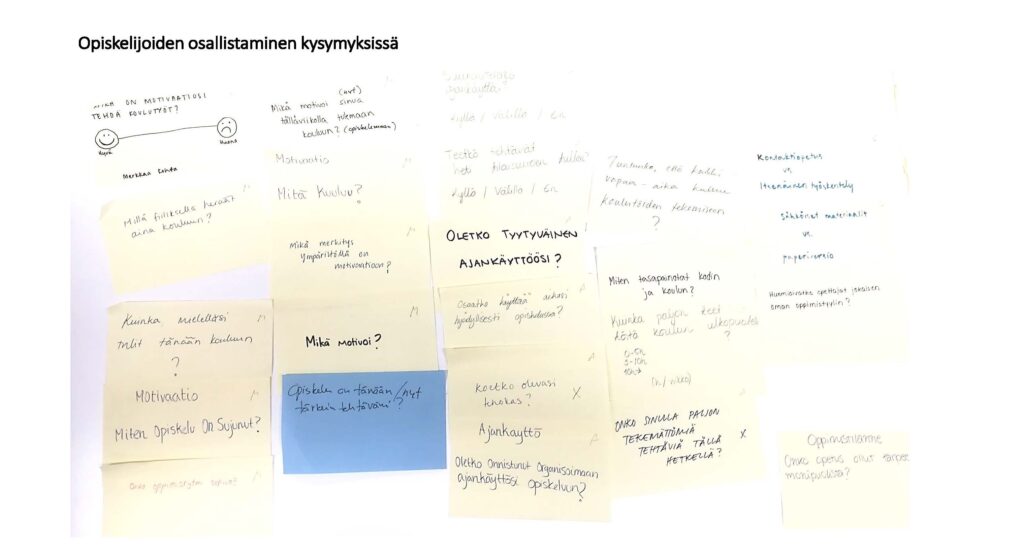 Opiskelijoiden osallistaminen kysymyksissä
MIKÄ ON MOTIVAATIOSI
TEHDÄ KOULUTYÖT?
Hyvä
Huono
Merkkaa kohta
Millä fiiliksellä heräät
aina kouluun?
M
Kuinka mielelläsi
tulit tänään kouluun
?
M
MOtivaatio
Miten Opiskelu On Sujunut?
M
(nyt)
Mikä motivoi sinua
tällä viikolla tulemaan
kouluun? (opiskelemaan)
Motivaatio
Mitä kuuluu?
M
Mikä merkitys
ympäristöllä on
motivaatioon?
M
Mikä motivoi?
Opiskelu on tänään/nyt
tärkein tehtäväni?
ajankäyttö
kyllä / Välillä / En
Teetkö tehtävät
heti
kyllä / Välillä / En
OLETKO TYYTYVÄINEN
AJANKÄYTTÖÖSI?
A
Osaatko käyttää aikasi
hyödyllisesti opiskelussa?
A
Koetko olevasi
tehokas?
X
Ajankäyttö
A
Oletko Onnistunut Organisoimaan
ajankäyttösi opiskeluun?
Tuntuuko, että kaikki
vapaa-aika kuluu
koulutöiden tekemiseen
?
Miten tasapainotat kodin
ja koulun?
Kuinka paljon teet
töitä koulun ulkopuolella
?
0-5h
5-10h
10h→
(h/viikko)
ONKO SINULLA PALJON
TEKEMÄTTÖMIÄ
TEHTÄVIÄ TÄLLÄ
HETKELLÄ?
X
Kontaktiopetus
vs.
Itsenäinen työskentely
Sähköiset materiaalit
vs.
paperiversio
Huomioivatko opettajat jokaisen
oman oppimistyylin?
Oppimistilanne
Onko opetus ollut
monipuolista?